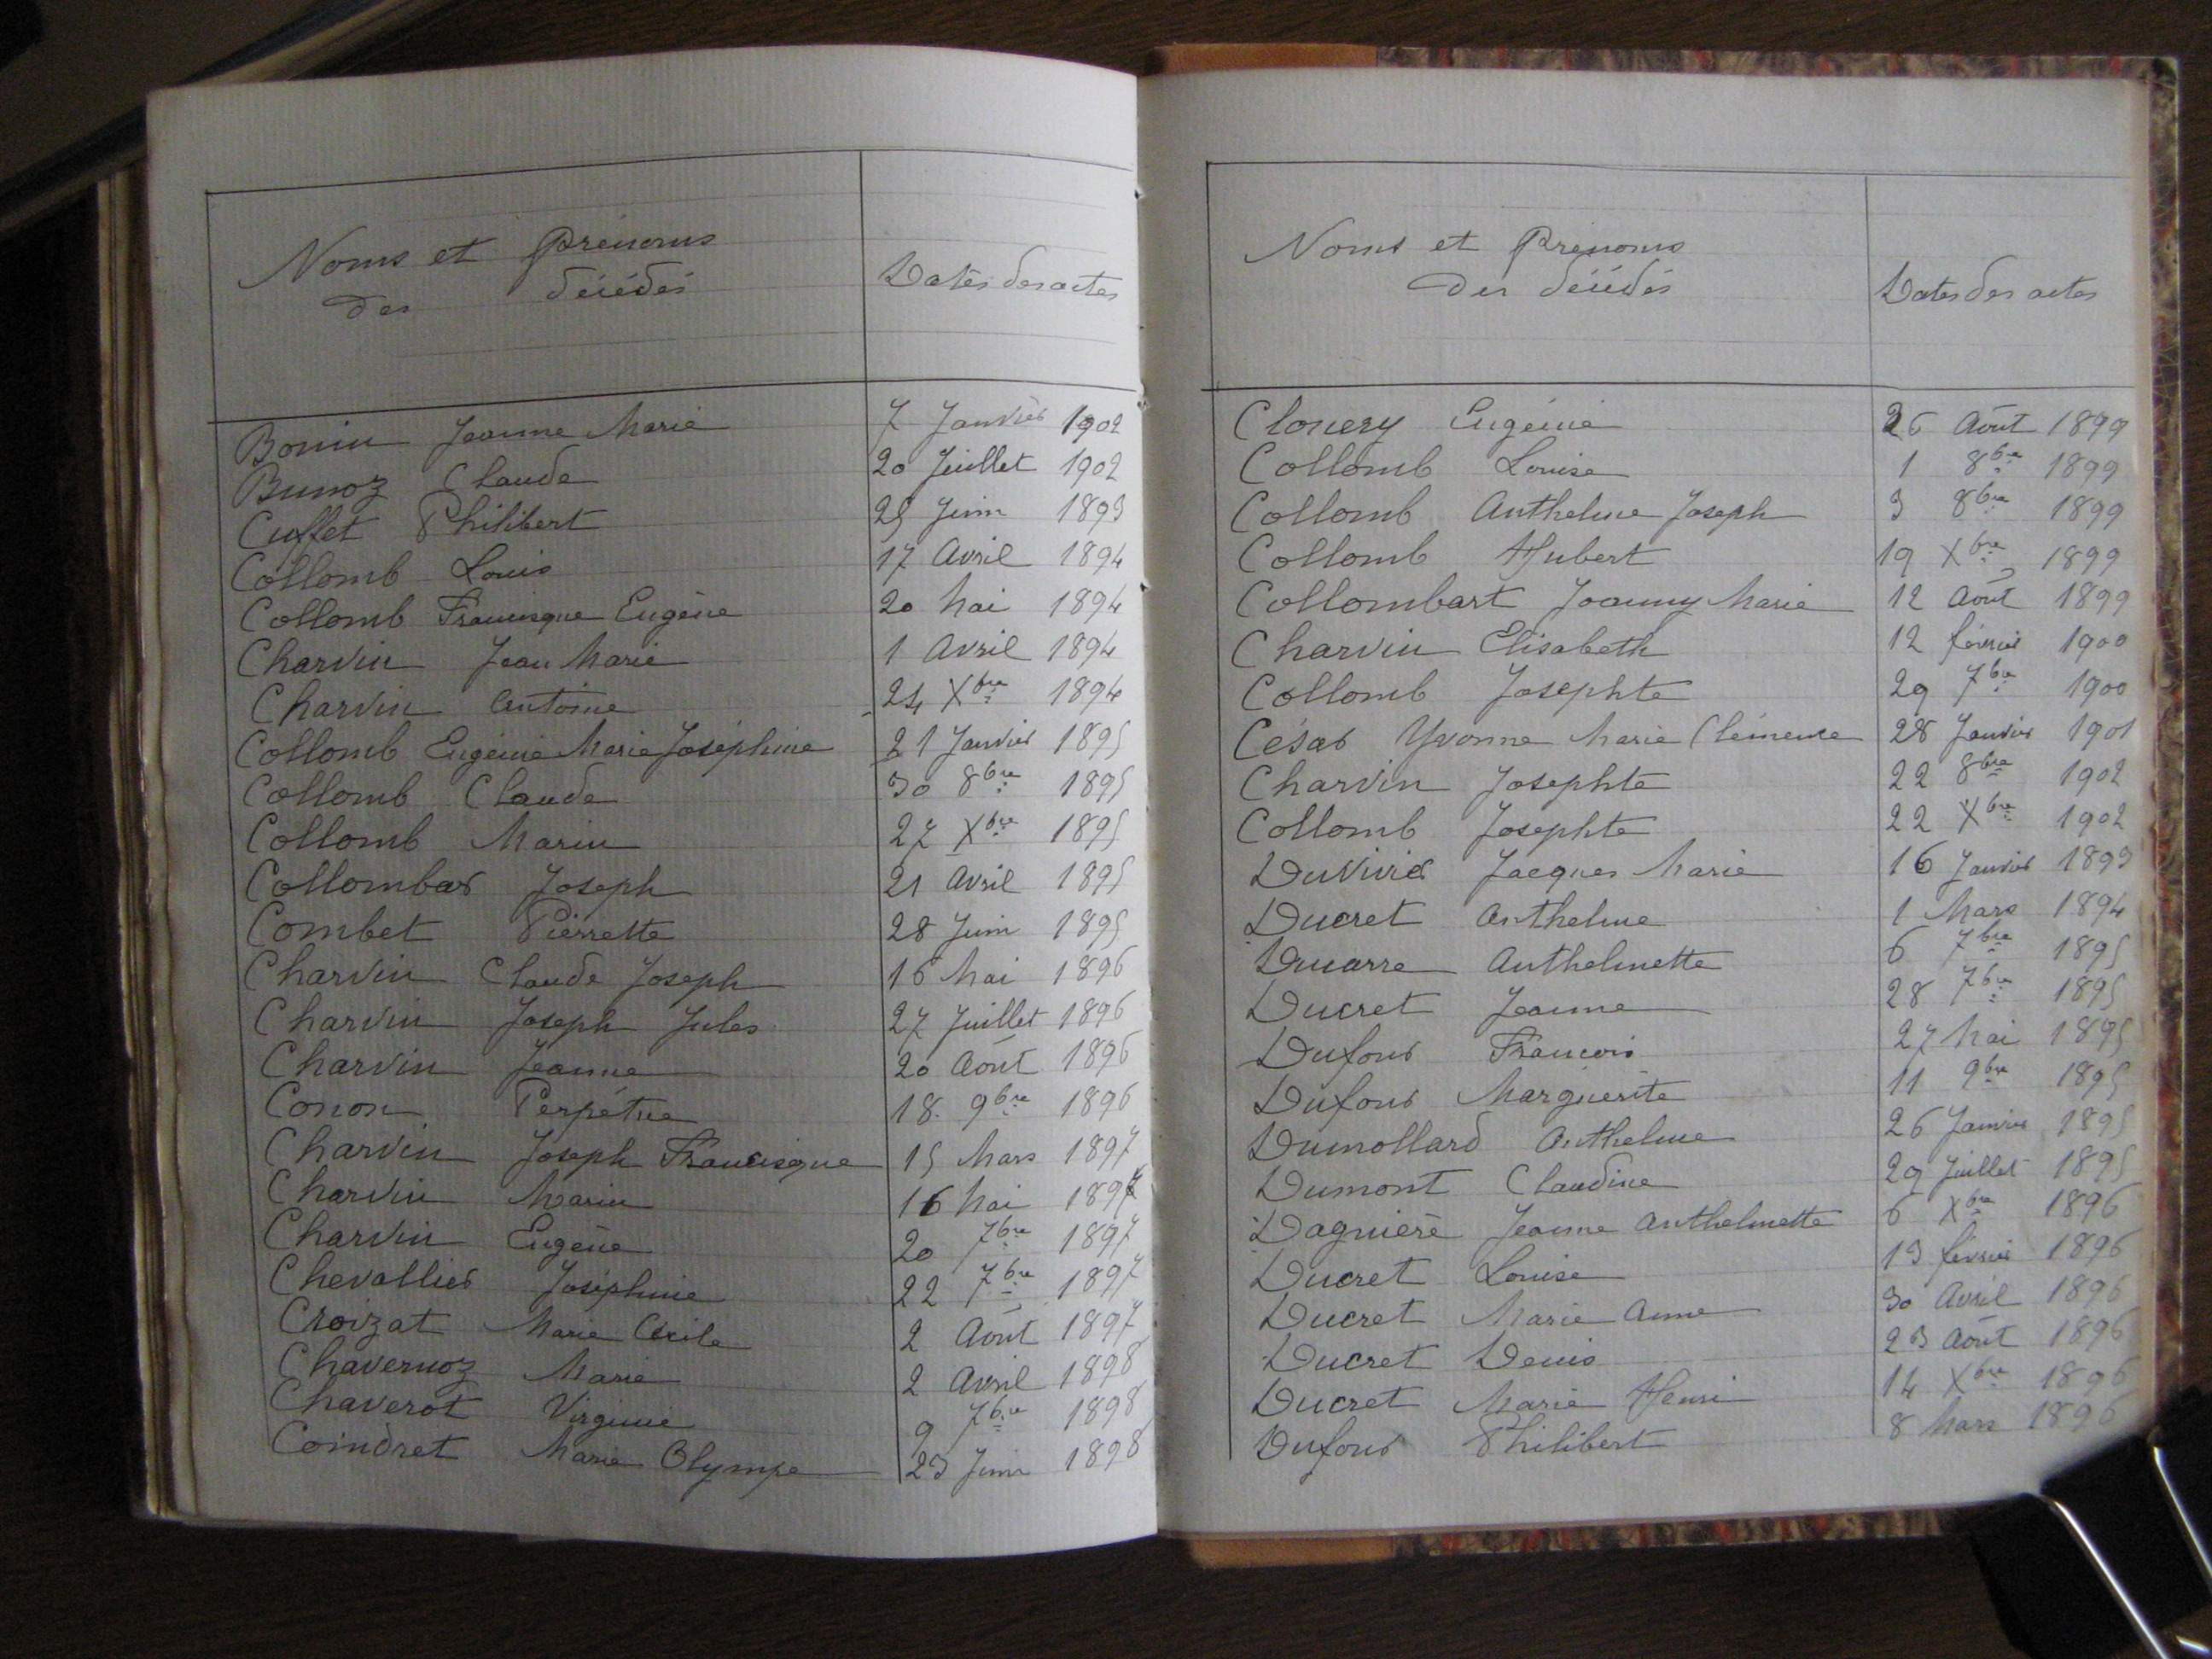 Noms et Prénoms
des décédés
Dates des actes
Bonin Jeanne Marie 7 Janvier 1902
Bunoz Claude 20 Juillet 1902
Cuffet Philibert 25 Juin 1893
Collomb Louis 17 Avril 1894
Collomb Francisque Eugène 20 Mai 1894
Charvin Jean Marie 1 Avril 1894
Charvin Antoine 24 Xbre 1894
Collomb Eugénie Marie Joséphine 21 Janvier 1895
Collomb Claude 30 8bre 1895
Collomb Marin 27 Xbre 1895
Collombar Joseph 21 Avril 1895
Combet Pierrette 28 Juin 1895
Charvin Claude Joseph 16 Mai 1896
Charvin Joseph Jules 27 Juillet 1896
Charvin Jeanne 20 Août 1896
Conon Perpétue 18 9bre 1896
Charvin Joseph Francisque 15 Mars 1897
Charvin Marin 16 Mai 1897
Charvin Eugène 20 7bre 1897
Chevallier Joséphine 22 7bre 1897
Croizat Marie Cécile 2 Août 1897
Chavernoz Marie 2 Avril 1898
Chaverot Virginie 9 7bre 1898
Coindret Marie Olympe 23 Juin 1898
Noms et Prénoms
des décédés
Dates des actes
Clouery Eugénie 26 Août 1899
Collomb Louise 1 8bre 1899
Collomb Anthelme Joseph 3 8bre 1899
Collomb Hubert 19 Xbre 1899
Collombart Joanny Marie 12 Août 1899
Charvin Elisabeth 12 février 1900
Collomb Josephte 29 7bre 1900
César Yvonne Marie Clémence 28 Janvier 1901
Charvin Josephte 22 8bre 1902
Collomb Josephte 22 Xbre 1902
Duvivier Jacques Marie 16 Janvier 1893
Ducret Anthelme 1 Mars 1894
Ducarre Anthelmette 6 7bre 1895
Ducret Jeanne 28 7bre 1895
Dufour François 27 Mai 1895
Dufour Marguerite 11 9bre 1895
Dumollard Anthelme 26 Janvier 1895
Dumont Claudine 29 Juillet 1895
Dagnière Jeanne Anthelmette 6 Xbre 1896
Ducret Louise 13 février 1896
Ducret Marie Anne 30 Avril 1896
Ducret Denis 23 Août 1896
Ducret Marie Henri 14 Xbre 1896
Dufour Philibert 8 Mars 1896